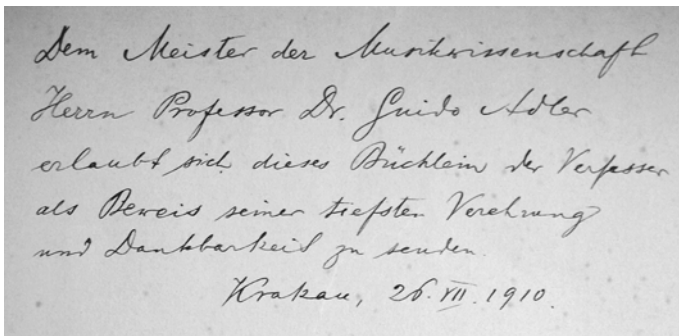 Dem Meister der Musikwissenschaft
Herrn Professor Dr. Guido Adler
erlaubt sich dieses Büchlein der Verfasser
als Beweis seiner tiefsten Verehrung
und Dankbarkeit zu senden.
Krakau, 26. VII. 1910.